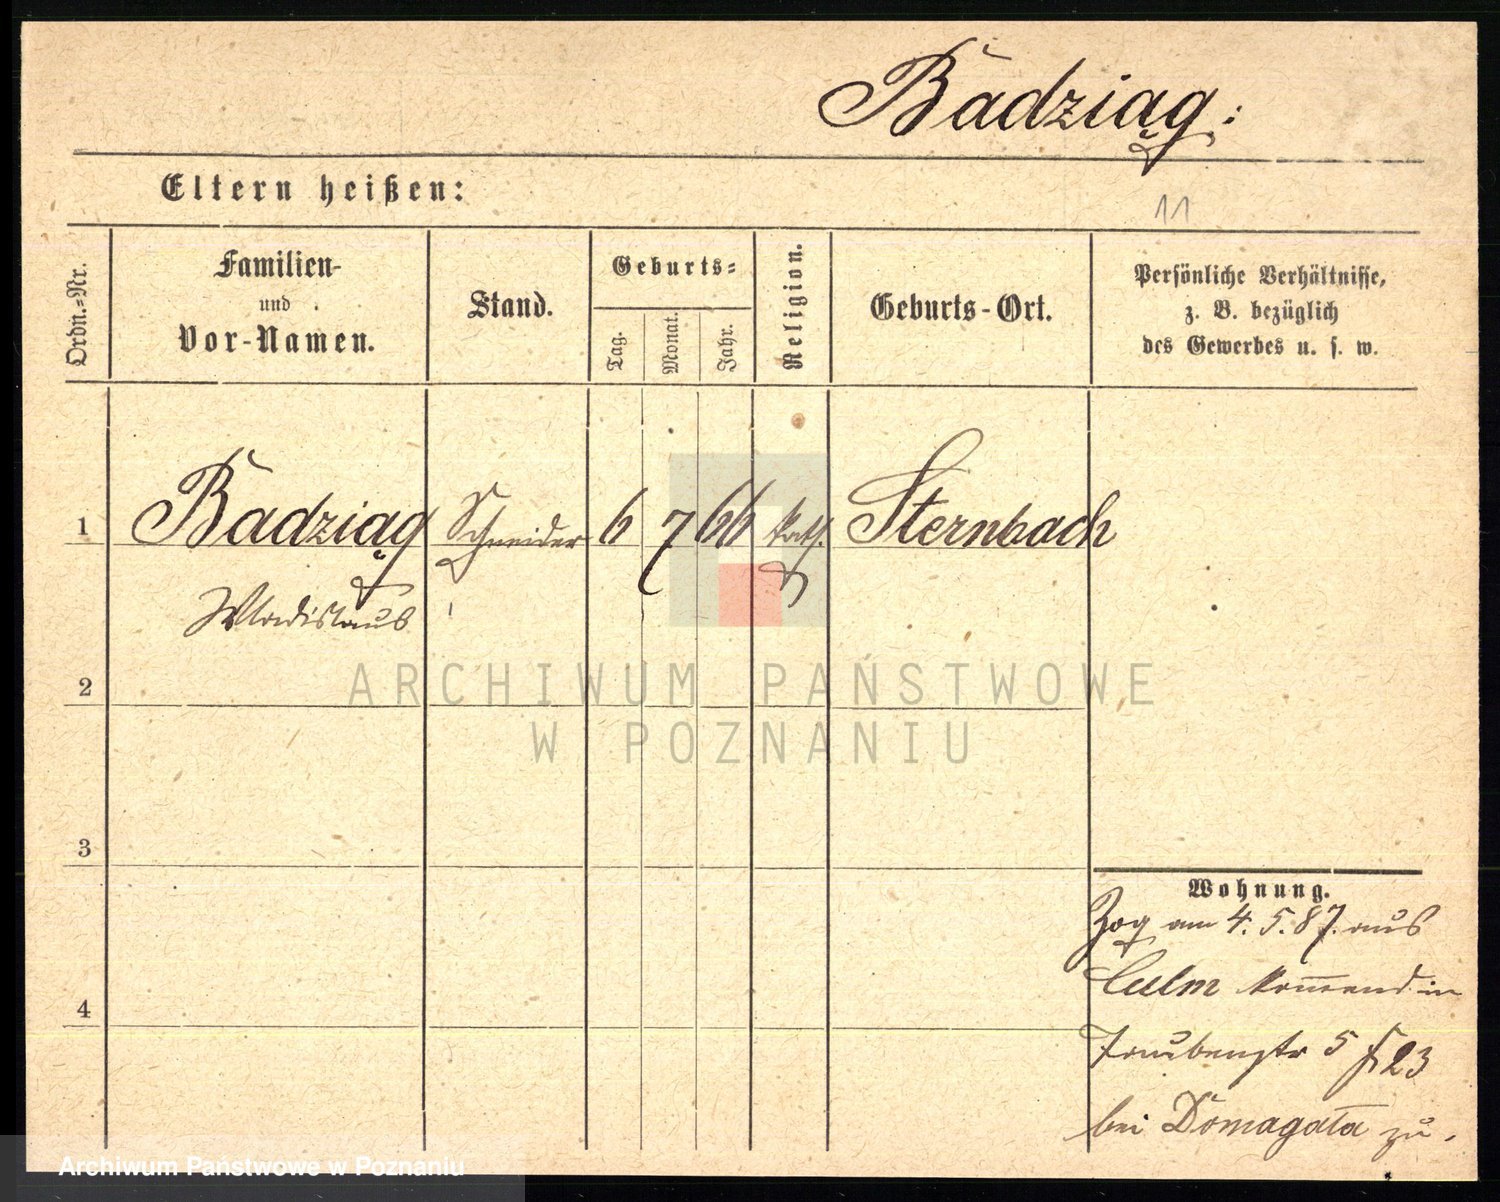 Badziąg:
Eltern heißen:
11
Ordn.-Nr.
Familien-
und
Vor-Namen.
Stand.
Geburts-
Tag.
Monat.
Jahr.
Religion.
Geburts-Ort.
Persönliche Verhältnisse,
z. B. bezüglich
des Gewerbes u. s. w.
1 Badziąg Schneider 6 7 66 kath. Sternbach
Wladislaus
2
3
4
Wohnung.
Zog am 4. 5. 87. aus
Culm kom̅end in
Taubenstr 5 23
bei Domagała zu.
ARCHIWUM PAŃSTWOWE
W POZNANIU
Archiwum Państwowe w Poznaniu